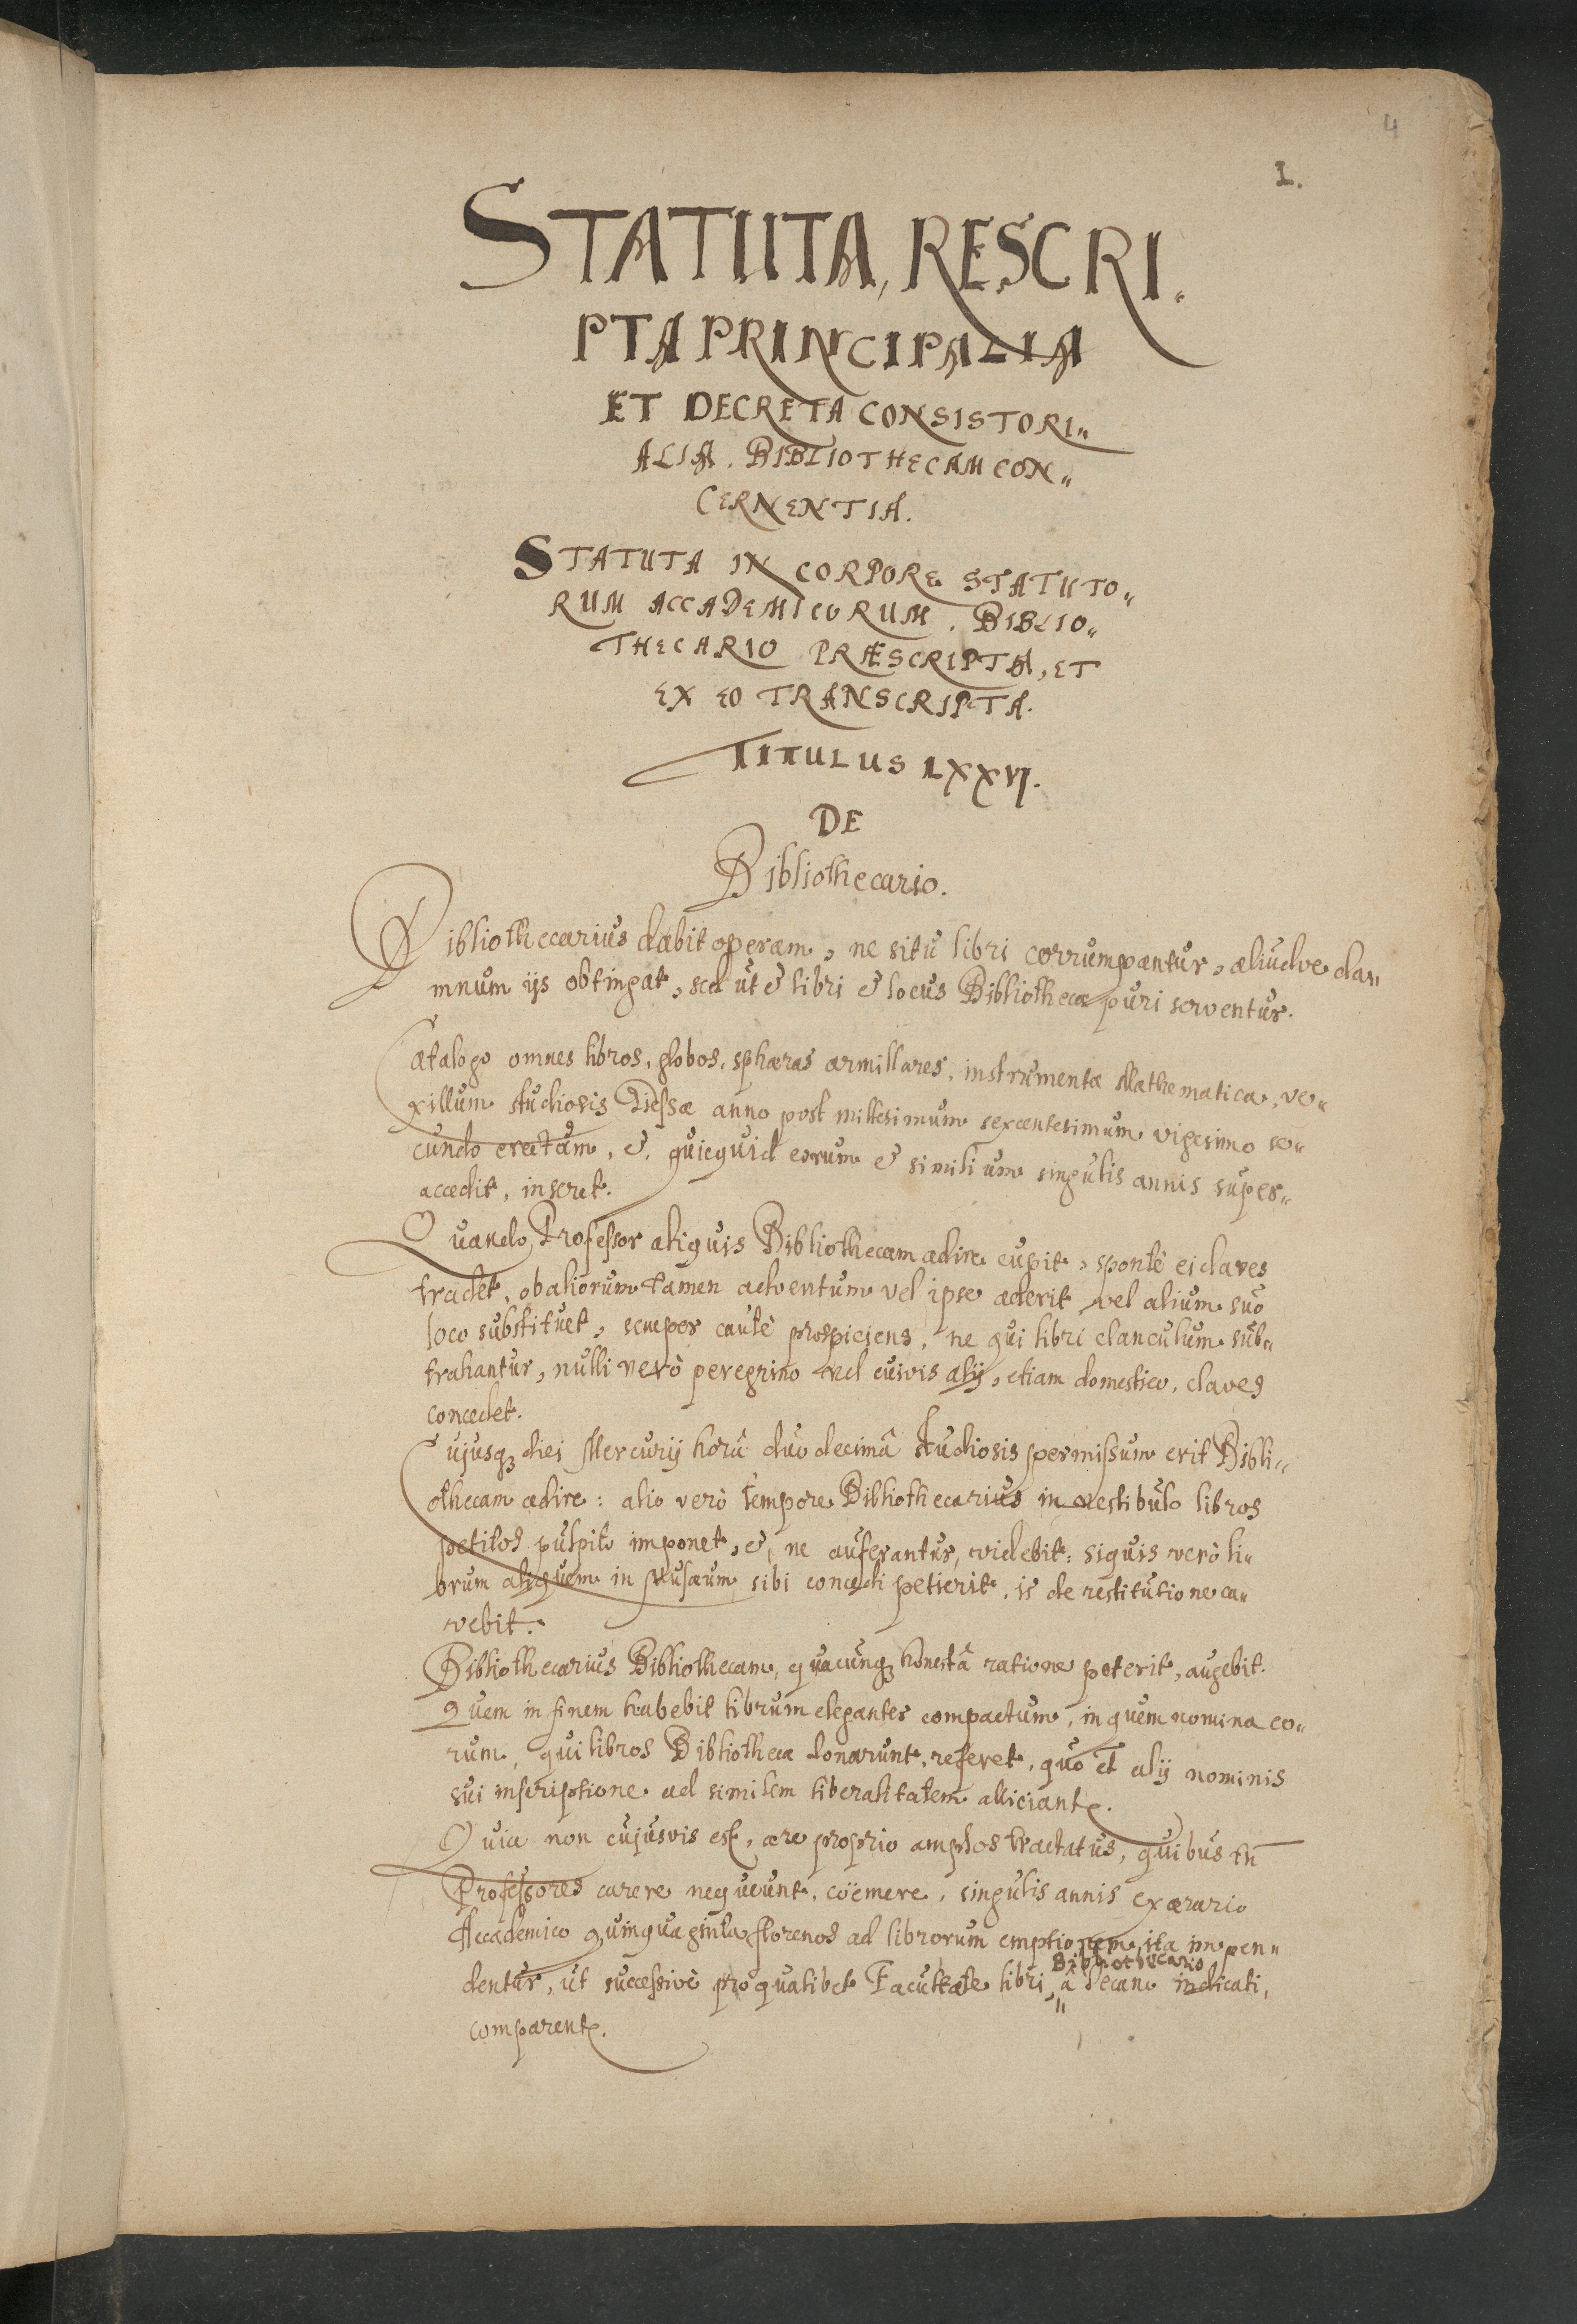 4
1.
STATUTA, RESCRI„
PTA PRINCIPALIA
ET DECRETA CONSISTORI„
ALIA. BIBLIOTHECAM CON„
CERNENTIA.
STATUTA IN CORPORE STATUTO„
RUM ACCADEMICORUM. BIBLIO„
THECARIO PRÆSCRIPTA, ET
EX EO TRANSCRIPTA.
TITULUS LXXVI.
DE
Bibliothecario.
Bibliothecarius dabit operam, ne sitū libri corrumpantur, aliudve da„
mnum ijs obtingat, sed ut & libri & locus Bibliothecæ puri serventur.
Catalogo omnes libros, globos, sphæras armillares, instrumenta Mathematica, ve„
xillum studiosis Giessæ anno post millesimum sexcentesimum vigesimo se„
cundo erectum, &, quicquid eorum & similium singulis annis super„
accedit, inseret.
Quando Professor aliquis Bibliothecam adire cupit, spontè ei claves
tradet, ob aliorum tamen adventum vel ipse aderit vel alium suo
loco substituet, semper cautè prospiciens, ne qui libri clanculum sub„
trahantur, nulli verò peregrino vel cuivis alij, etiam domestico, claves
concedet.
Cujusq; diei Mercurij horâ duodecimâ studiosis permissum erit Bibli„
othecam adire: alio verò tempore Bibliothecarius in vestibulo libros
petitos pulpito imponet, &, ne auferantur, videbit: siquis verò li„
brum aliquem in Musæum sibi concedi petierit, is de restitutione ca„
vebit.
Bibliothecarius Bibliothecam, quacunq; honestâ ratione poterit, augebit.
Quem in finem habebit librum eleganter compactum, in quem nomina eo„
rum, qui libros Bibliothecæ donarunt, referet, quo et alij nominis
sui inscriptione ad similem liberalitatem alliciant.
Quia non cujusvis est, ære proprio amplos tractatus, quibus tn̄
Professores carere nequeunt, coëmere, singulis annis ex ærario
Accademico quinquaginta florenos ad librorum emptionem ita impen„
Bibliothecario
dentur, ut successivè pro qualibet Facultate libri, â Decano indicati,
comparent.